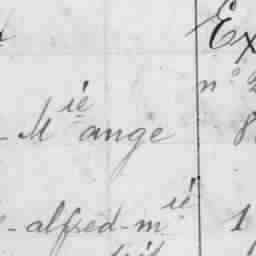 Ex
n° 2
- Mie ange 8
- alfred - mie 1